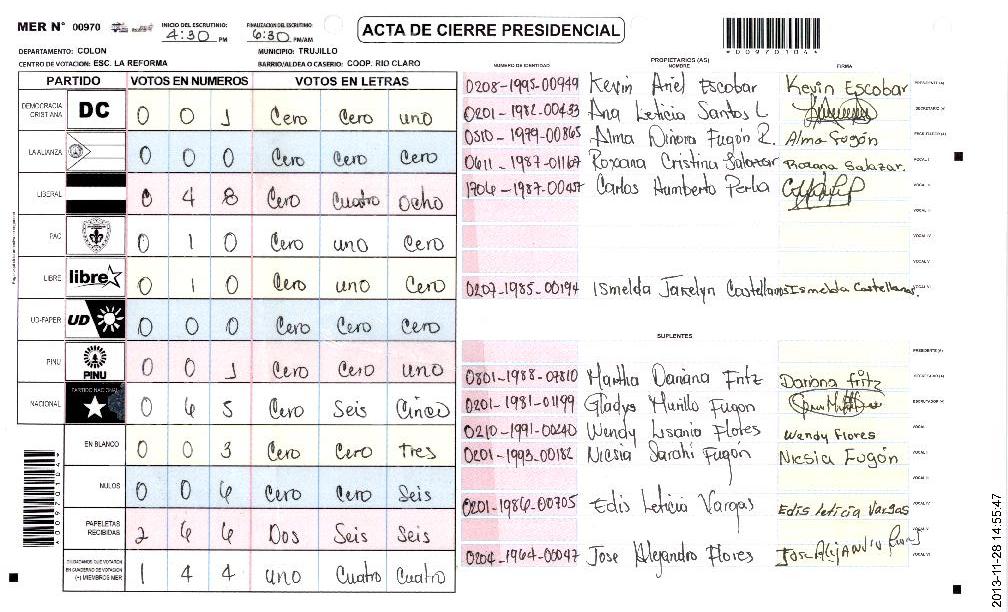 MER N° 00970
INICIO DEL ESCRUTINIO: 4:30 PM
FINALIZACION DEL ESCRUTINIO: 6:30 PM/AM
ACTA DE CIERRE PRESIDENCIAL
*00970104*
DEPARTAMENTO: COLON
MUNICIPIO: TRUJILLO
CENTRO DE VOTACION: ESC. LA REFORMA
BARRIO/ALDEA O CASERIO: COOP. RIO CLARO
PARTIDO VOTOS EN NUMEROS VOTOS EN LETRAS
DEMOCRACIA CRISTIANA DC 0 0 1 Cero Cero uno
LA ALIANZA 0 0 0 Cero Cero Cero
LIBERAL 0 4 8 Cero Cuatro Ocho
PAC 0 1 0 Cero uno Cero
LIBRE libre 0 1 0 Cero uno Cero
UD-FAPER UD 0 0 0 Cero Cero Cero
PINU PINU 0 0 1 Cero Cero uno
NACIONAL PARTIDO NACIONAL 0 6 5 Cero Seis Cinco
EN BLANCO 0 0 3 Cero Cero tres
NULOS 0 0 6 Cero Cero Seis
PAPELETAS RECIBIDAS 2 6 6 Dos Seis Seis
CIUDADANOS QUE VOTARON EN CUADERNO DE VOTACION (+) MIEMBROS MER 1 4 4 uno Cuatro Cuatro
*00970104*
PROPIETARIOS (AS)
NUMERO DE IDENTIDAD NOMBRE FIRMA
0208-1995-00949 Kevin Ariel Escobar Kevin Escobar PRESIDENTE (A)
0201-1982-00433 Ana Leticia Santos L SECRETARIO (A)
0510-1979-00865 Alma Dinora Fugón R. Alma Fugón ESCRUTADOR (A)
0611-1987-01167 Roxana Cristina Salazar Roxana Salazar. VOCAL I
1706-1987-00457 Carlos Humberto Perla VOCAL II
VOCAL III
VOCAL IV
VOCAL V
0207-1985-00194 Ismelda Jakelyn Castellanos Ismelda Castellanos. VOCAL VI
SUPLENTES
PRESIDENTE (A)
0801-1988-07810 Martha Dariana Fritz Dariana fritz SECRETARIO (A)
0201-1981-01199 Gladys Murillo Fugon ESCRUTADOR (A)
0210-1991-00240 Wendy Lisania Flores Wendy Flores VOCAL I
0201-1993-00182 Nicsia Sarahi Fugón Nicsia Fugón VOCAL II
VOCAL III
0201-1986-00705 Edis Leticia Vargas Edis leticia Vargas VOCAL IV
VOCAL V
0204-1964-00047 Jose Alejandro Flores VOCAL VI
2013-11-28 14:55:47